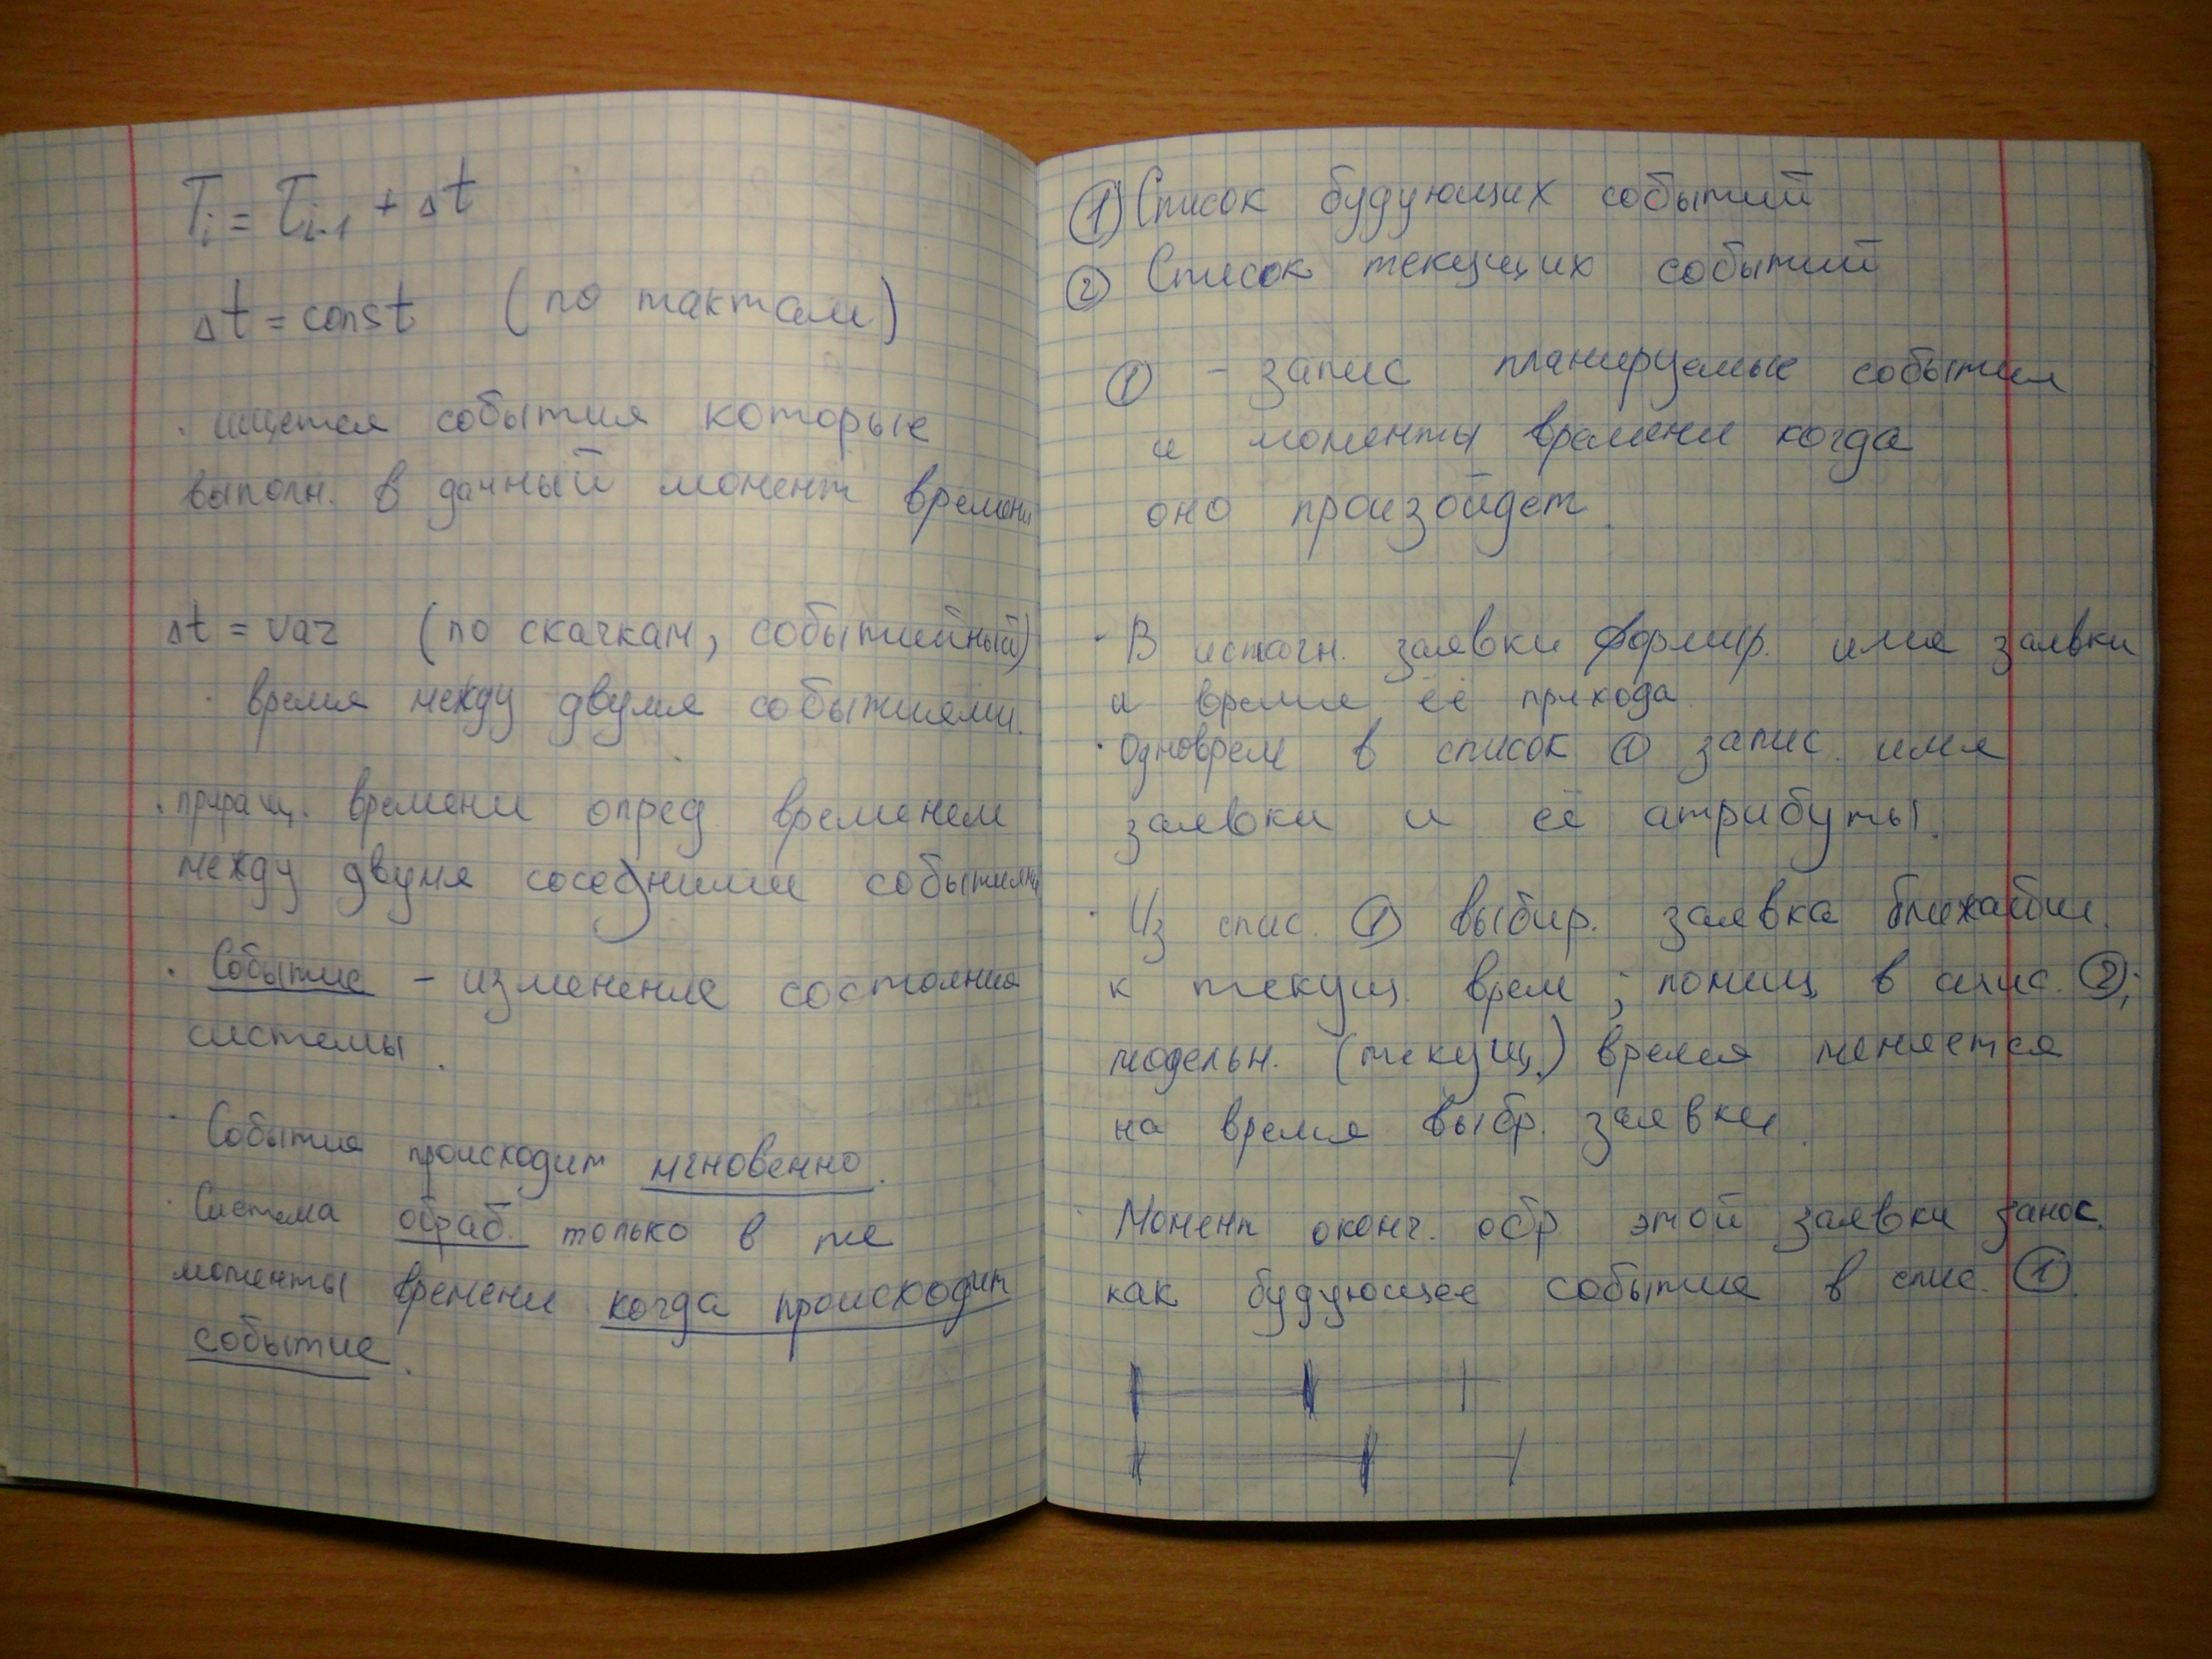 Tᵢ = Tᵢ₋₁ + Δt
Δt = const (по тактам)
· ищется события которые
выполн. в данный момент времени
Δt = var (по скачкам, событийный)
· время между двумя событиями.
· приращ. времени опред. временем
между двумя соседними событиями
· Событие – изменение состояния
системы.
· События происходит мгновенно.
· Система обраб. только в те
моменты времени когда происходит
событие.
① Список будующих событий
② Список текущих событий
① – запис планируемые события
и моменты времени когда
оно произойдет.
· В источн. заявки формир. имя заявки
и время её прихода.
· Одноврем в список ① запис. имя
заявки и её атрибуты.
· Из спис. ① выбир. заявка ближайш.
к текущ. врем ; помещ в спис. ②;
модельн. (текущ.) время меняется
на время выбр. заявки.
· Момент оконч. обр этой заявки занос.
как будующее событие в спис. ①.